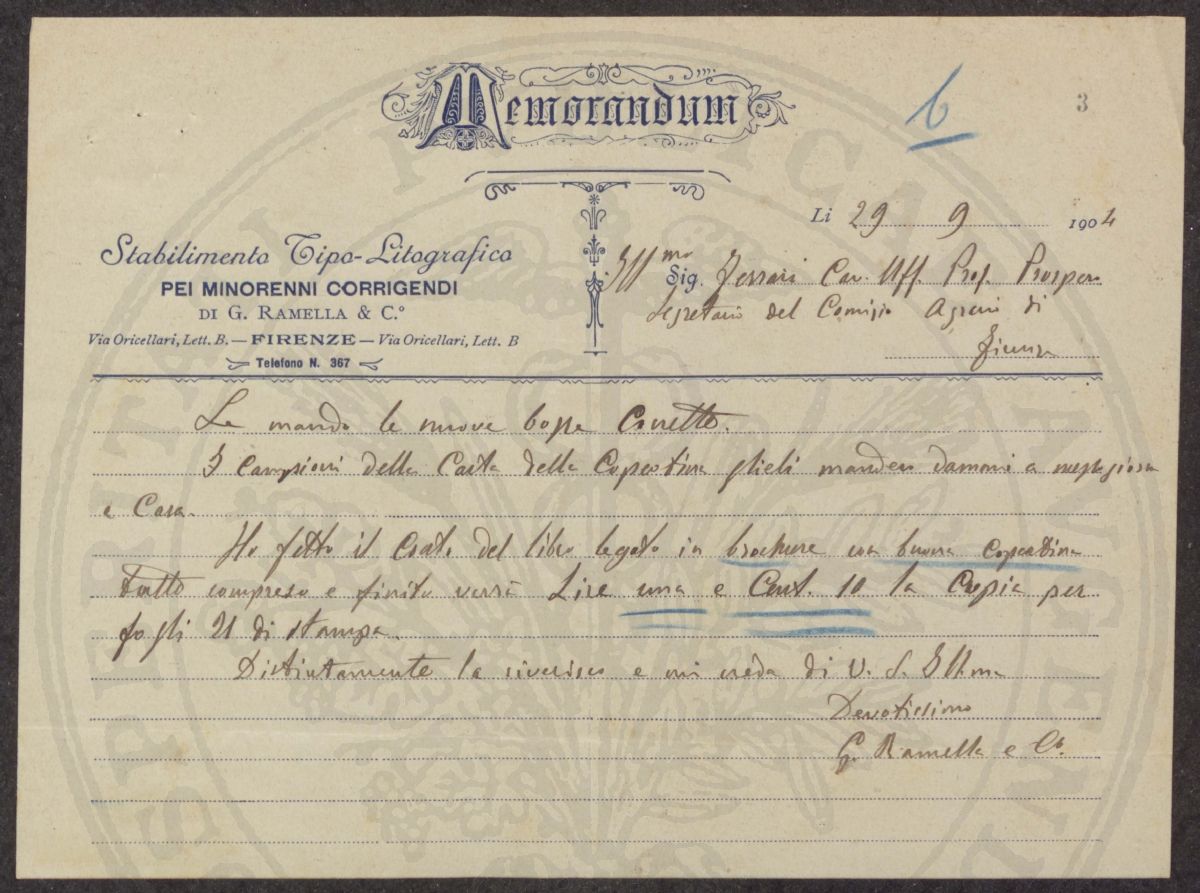 Memorandum
6
3
Li 29 9 1904
Stabilimento Tipo-Litografico
PEI MINORENNI CORRIGENDI
DI G. RAMELLA & C.º
Via Oricellari, Lett. B. — FIRENZE — Via Oricellari, Lett. B
Telefono N. 367
Illmo Sig. Ferrari Cav. Uff. Prof. Prospero
Segretario del Comizio Agrario di
Firenze
Le mando le nuove bozze Corrette.
I Campioni della Carta della Copertina glieli manderò domani a mezzogiorno
a Casa.
Ho fatto il Conto del libro legato in brochure con buona copertina
tutto compreso e finito verrà Lire una e Cent. 10 la Copia per
fogli 21 di stampa.
Distintamente la riverisco e mi creda di V. S. Illma
Devotissimo
G. Ramella e Co.